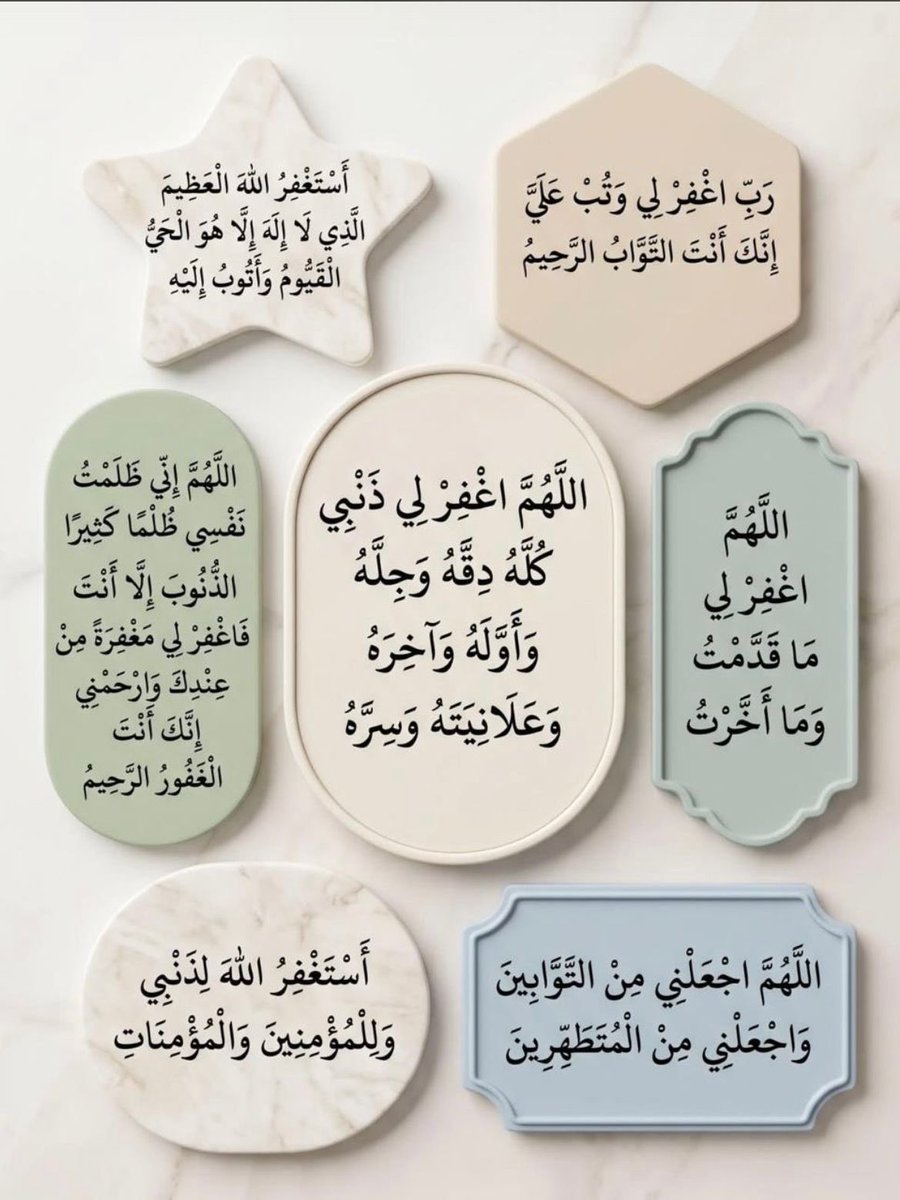 أَسْتَغْفِرُ اللهَ الْعَظِيمَ
الَّذِي لَا إِلَهَ إِلَّا هُوَ الْحَيُّ
الْقَيُّومُ وَأَتُوبُ إِلَيْهِ
رَبِّ اغْفِرْ لِي وَتُبْ عَلَيَّ
إِنَّكَ أَنْتَ التَّوَّابُ الرَّحِيمُ
اللَّهُمَّ إِنِّي ظَلَمْتُ
نَفْسِي ظُلْمًا كَثِيرًا
الذُّنُوبَ إِلَّا أَنْتَ
فَاغْفِرْ لِي مَغْفِرَةً مِنْ
عِنْدِكَ وَارْحَمْنِي
إِنَّكَ أَنْتَ
الْغَفُورُ الرَّحِيمُ
اللَّهُمَّ اغْفِرْ لِي ذَنْبِي
كُلَّهُ دِقَّهُ وَجِلَّهُ
وَأَوَّلَهُ وَآخِرَهُ
وَعَلَانِيَتَهُ وَسِرَّهُ
اللَّهُمَّ
اغْفِرْ لِي
مَا قَدَّمْتُ
وَمَا أَخَّرْتُ
أَسْتَغْفِرُ اللهَ لِذَنْبِي
وَلِلْمُؤْمِنِينَ وَالْمُؤْمِنَاتِ
اللَّهُمَّ اجْعَلْنِي مِنْ التَّوَّابِينَ
وَاجْعَلْنِي مِنْ الْمُتَطَهِّرِينَ